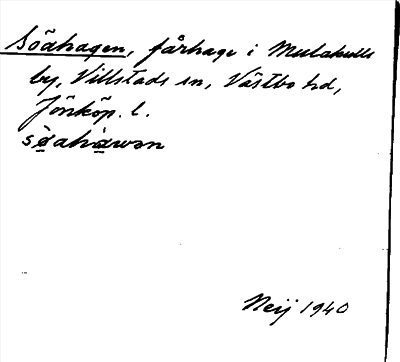 Söahagen, fårhage i Mulakulls
by, Villstads sn, Västbo hd,
Jönköp. l.
söahàwən
Neij 1940